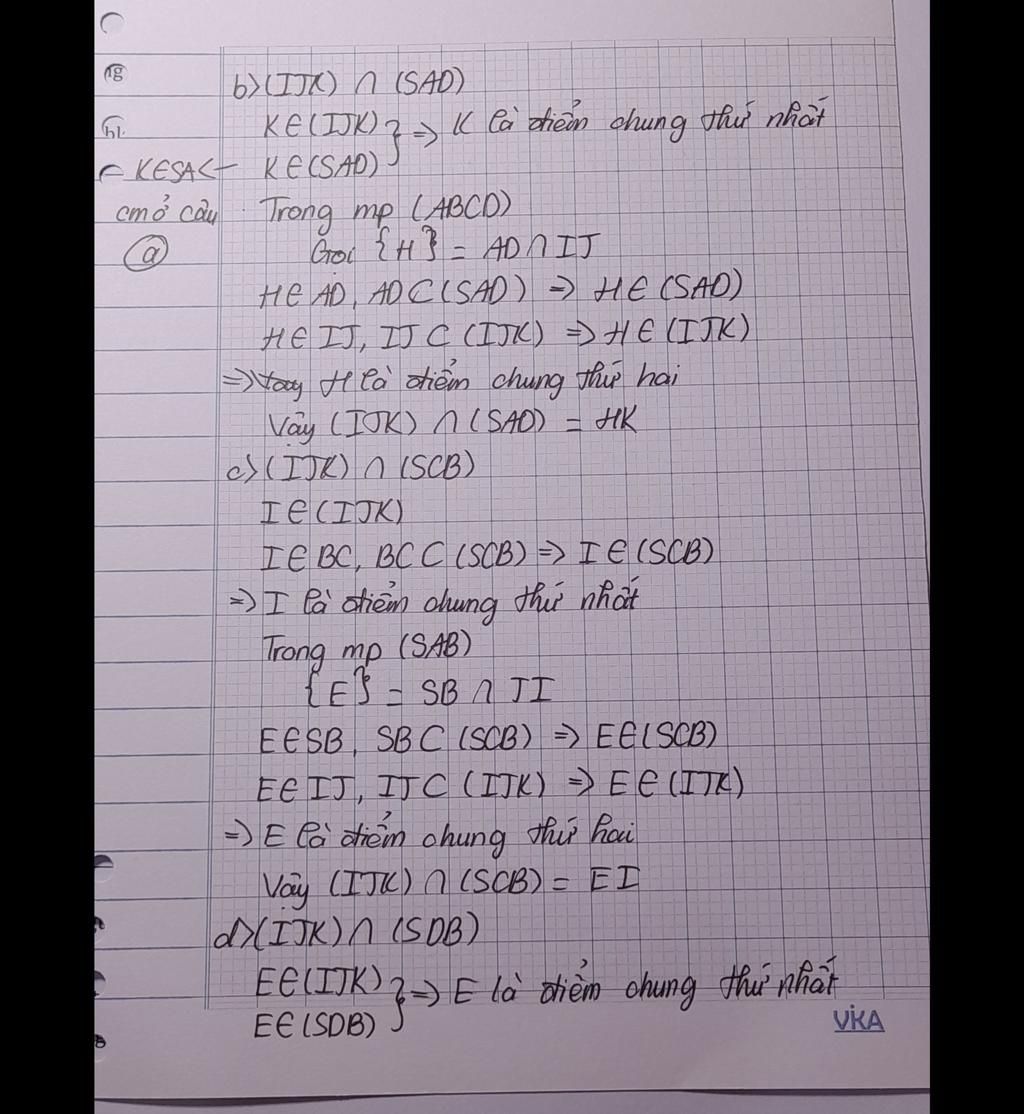 b) (IJK) ∩ (SAD)
K∈(IJK) } ⇒ K là điểm chung thứ nhất
K∈SA ← K∈(SAD)
cm ở câu
ⓐ
Trong mp (ABCD)
Gọi {H} = AD ∩ IJ
H∈AD, AD⊂(SAD) ⇒ H∈(SAD)
H∈IJ, IJ⊂(IJK) ⇒ H∈(IJK)
⇒ H là điểm chung thứ hai
Vậy (IJK) ∩ (SAD) = HK
c) (IJK) ∩ (SCB)
I∈(IJK)
I∈BC, BC⊂(SCB) ⇒ I∈(SCB)
⇒ I là điểm chung thứ nhất
Trong mp (SAB)
{E} = SB ∩ JI
E∈SB, SB⊂(SCB) ⇒ E∈(SCB)
E∈IJ, IJ⊂(IJK) ⇒ E∈(IJK)
⇒ E là điểm chung thứ hai
Vậy (IJK) ∩ (SCB) = EI
d) (IJK) ∩ (SDB)
E∈(IJK) } ⇒ E là điểm chung thứ nhất
E∈(SDB)
VIKA